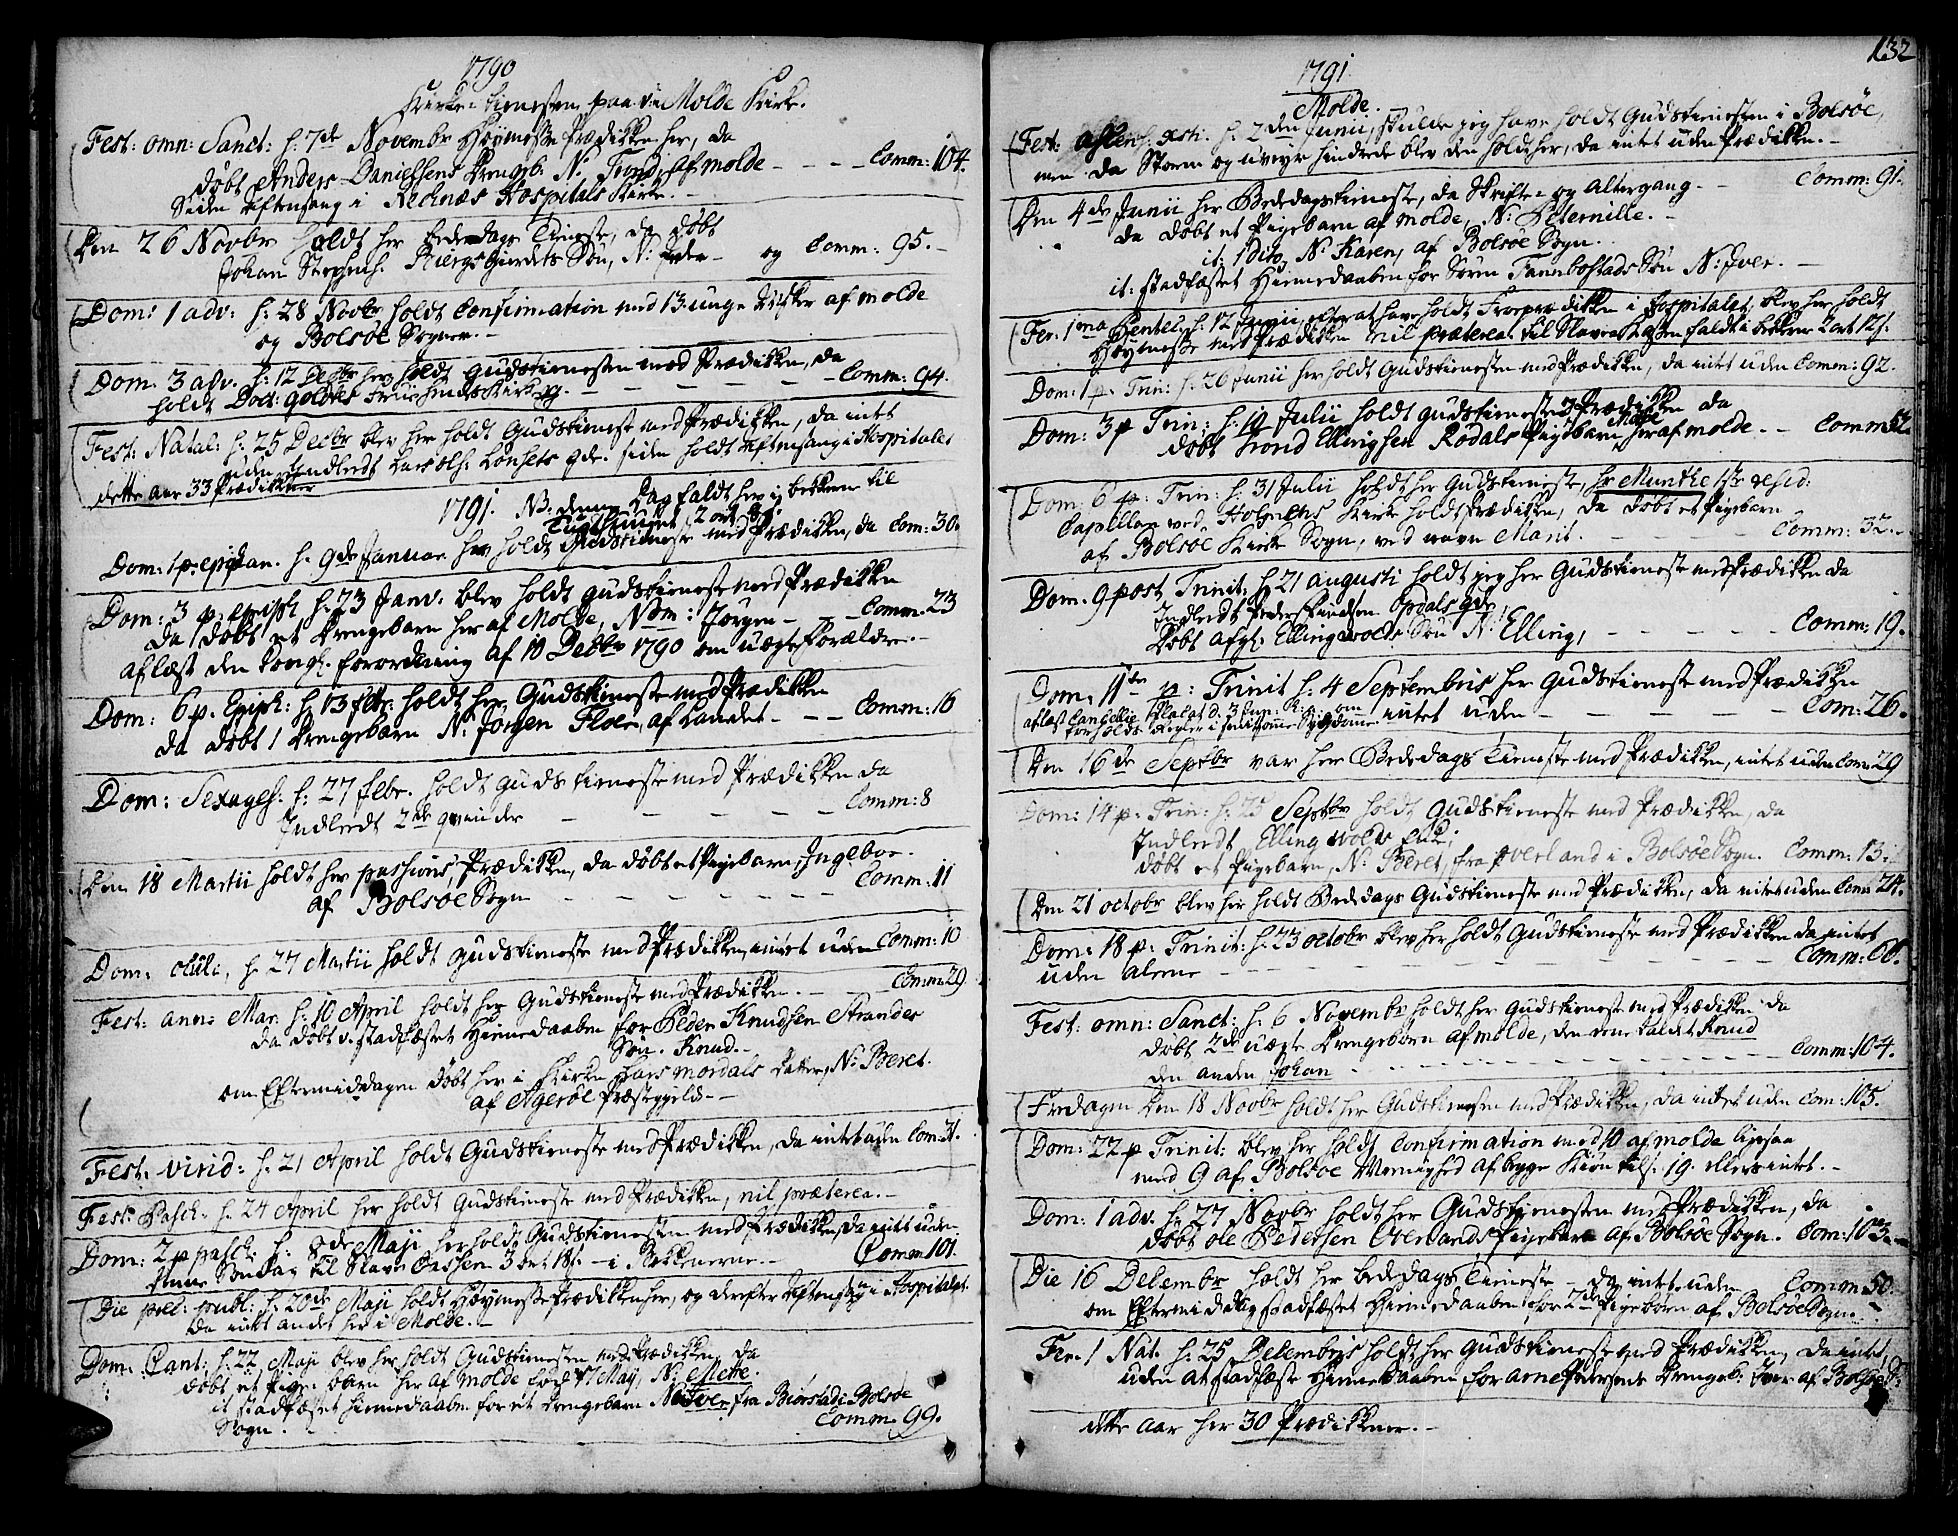 1790
Kirke-tienesten paa d: Molde Kirke.
Fest: omn: Sanct: h: 7de Novembr Høymesse Prædikken her, da
døbt Anders Danielsens Drengeb: N. Trond, af Molde - - - Comm: 104.
Siden Aftensang i Rechnæs Hospitals Kirke. -
Den 26 Novbr holdt her Bededags Tieneste, da døbt
Johan Stephens. Biergsgierdets Søn, N: Peder - og Comm: 95. -
Dom: 1 adv: h: 28 Novbr holdt Confirmation med 13 unge Fisker af Molde
og Bolsøe Sogner. -
Dom: 3 adv. h: 12 Decbr her holdt Gudstienesten med Prædikken, da
holdt Doct: Frue hendes Kirkeg. - - - - - Comm: 94.
Fest: Natal: h: 25 Decbr blev her holdt Gudstieneste med Prædikken, da intet
uden Indledt Lars Ols: Lønsets qde: siden holdt Aftensang i Hospitalet
dette aar 33 Prædikkener
1791. NB. denne Dag faldt her i bekkene til
Tugthuuset, 2 ort
Dom: 1 p. epiphan. h. 9de Januar her holdt Gudstieneste med Prædikken, da Com: 30.
Dom: 3 p. epiph h: 23 Janv. blev holdt Gudstieneste med Prædikken
da døbt et Drengebarn her af Molde, Nom: Jørgen - - - Comm. 23
aflæst den Kongl. forordning af 10 Decbr 1790 om uægte Forældre. -
Dom: 6 p. Epiph: h: 13 febr: holdt her Gudstieneste med Prædikken
da døbt 1 Drengebarn N: Jørgen Floer, af Landet - - - Comm: 16
Dom: Sexages: h: 27 febr. holdt Gudstieneste med Prædikken da
Indledt 2de qvinder - - - - - Comm: 8
Den 18 Martii holdt her passions Prædikken, da døbt et Pigebarn, Ingebor.
af Bolsøe Sogn - - - - - - Comm: 11
Dom: Oculi, h. 27 Martii holdt Gudstieneste med Prædikken, intet uden Comm: 10
Fest: ann: Mar. h: 10 April holdt her Gudstieneste med Prædikken. - - Comm: 29
da døbt v. stadfæstet Hiemedaaben for Peder Knudsen Strandes
Søn. Knud. -
om Eftermiddagen døbt her i Kirken Lars Mordals Datter, N: Beret.
af Agerøe Præstegield - -
Fest: virid: h: 21 April holdt Gudstieneste med Prædikken, da intet uden Com: 31.
Fest: Pasch: h. 24 April her holdt Gudstieneste med Prædikken, nil præterea. -
Dom: 2 p pasch: h. 8de Maji her holdt Gudstienesten med Prædikken, da intet uden
denne Søndag til Slave Cassen 3 ort 18s. - i Bekkenerne. - Comm: 101.
Die prec: publ: h. 20de Maji holdt Høymesse Prædikken her, og derefter Aftensang i Hospitalet
da intet andet her i Molde. -
Dom: Cant: h. 22 Maji blev her holdt Gudstienesten med Prædikken, da
døbt et Pige-barn her af Molde fød 17 May, N: Mette.
it stadfæstet hiemedaaben for et Drengebarn N: Iver fra Biørstad i Bolsøe
Sogn. - - - - Comm. 99.
132
1791
Molde.
Fest: Ascens. Xsti. h. 2den Junii, skulde jeg have holdt Gudstienesten i Bolsøe,
men da Storm og uveyr hindrede blev den holdt her, da intet uden Prædikken. -
Comm: 91.
Den 4de Junii her Bededagstieneste, da Skrifte- og Altergang. - -
da døbt et Pigebarn af Molde, N: Peternille. -
it: 1 dito, N: Karen, af Bolsøe Sogn. -
it: stadfæstet Hiemedaaben for Søren Fannbostads Søn N: Iver. -
Fer: 1ma Pentec: h. 12 Junii, efter at have holdt Froprædikken i Hospitalet, blev her holdt
Høymesse med Prædikken nil præterea. til Slaver faldt i bekkene 2 ort 12s.
Dom: 1 p. Trin: h. 26 Junii her holdt Gudstienesten med Prædikken, da intet uden Comm: 92.
Dom: 3 p Trin: h. 10 Julii holdt Gudstieneste Prædikken da
døbt Trond Ellingsen Rødals Pigebarn her af Molde. - - Comm:
Dom: 6 p: Trin: h. 31 Julii holdt her Gudstieneste, hr Munthe 1ste resid:
Capellan ved Kirke holdt Prædikken, da døbt et Pigebarn
af Bolsøe Kirke Sogn, ved navn Marit. - - - - - Comm: 32.
Dom. 9 post Trinit: h. 21 augusti holdt jeg her Gudstieneste med Prædikken da
Indledt Peder Knudsen Opdals qde
døbt afg: Elling wolds Søn N: Elling, - - - - - Comm: 19.
Dom: 11te p: Trinit h: 4 Septembris her Gudstieneste med Prædikken
aflæst Cancellie Plakat d: 3 om
Forholds Regler i smitsomme Sygdomme intet uden - - - - Com: 26.
Den 16de Septbr var her Bededags Tieneste med Prædikken, intet uden Com: 29
Dom: 14 p. Trin: h. 25 Septbr holdt Gudstieneste med Prædikken, da
Indledt Elling wolds Enke
døbt et Pigebarn, N: Beret, fra Øverland i Bolsøe Sogn. Comm: 13.
Den 21 octobr blev her holdt Bededags Gudstieneste med Prædikken, da intet uden Com: 24.
Dom: 18 p: Trinit: h. 23 octobr blev her holdt Gudstieneste med Prædikken da intet
uden alene - - - - - - - - - - Comm: 60.
Fest: omn: Sanct: h. 6 Novembr holdt her Gudstieneste med Prædikken da
døbt 2de uægte Drengebørn af Molde, den eene kaldet Knud
den anden Johan - - - - - - - - - - Comm: 104.
Fredagen Den 18 Novbr holdt her Gudstienesten med Prædikken, da intet uden Com: 105.
Dom: 22 p Trinit: blev her holdt Confirmation med 10 af Molde ligesaa
med 9 af Bolsøe Menighed af begge Kiøn tils: 19. ellers intet. -
Dom: 1 adv. h. 27 Novbr holdt her Gudstienesten med Prædikken, da
døbt ole Pedersen Overlands Pigebarn af Bolsøe Sogn. Com: 103.
Die 16 Decembr holdt her bededags Tieneste - da intet uden Comm. 50.
om Eftermiddag stadfæstet Hiemedaaben for 2de Pigebørn af Bolsøe Sogn. -
Fer. 1 Nat. h. 25 Decembris holdt her Gudstieneste med Prædikken, da intet,
uden at stadfæste Hiemedaaben for arne Pedersens Drengeb: Iver af Bolsøe S:
dette aar her 30 Prædikkener. -